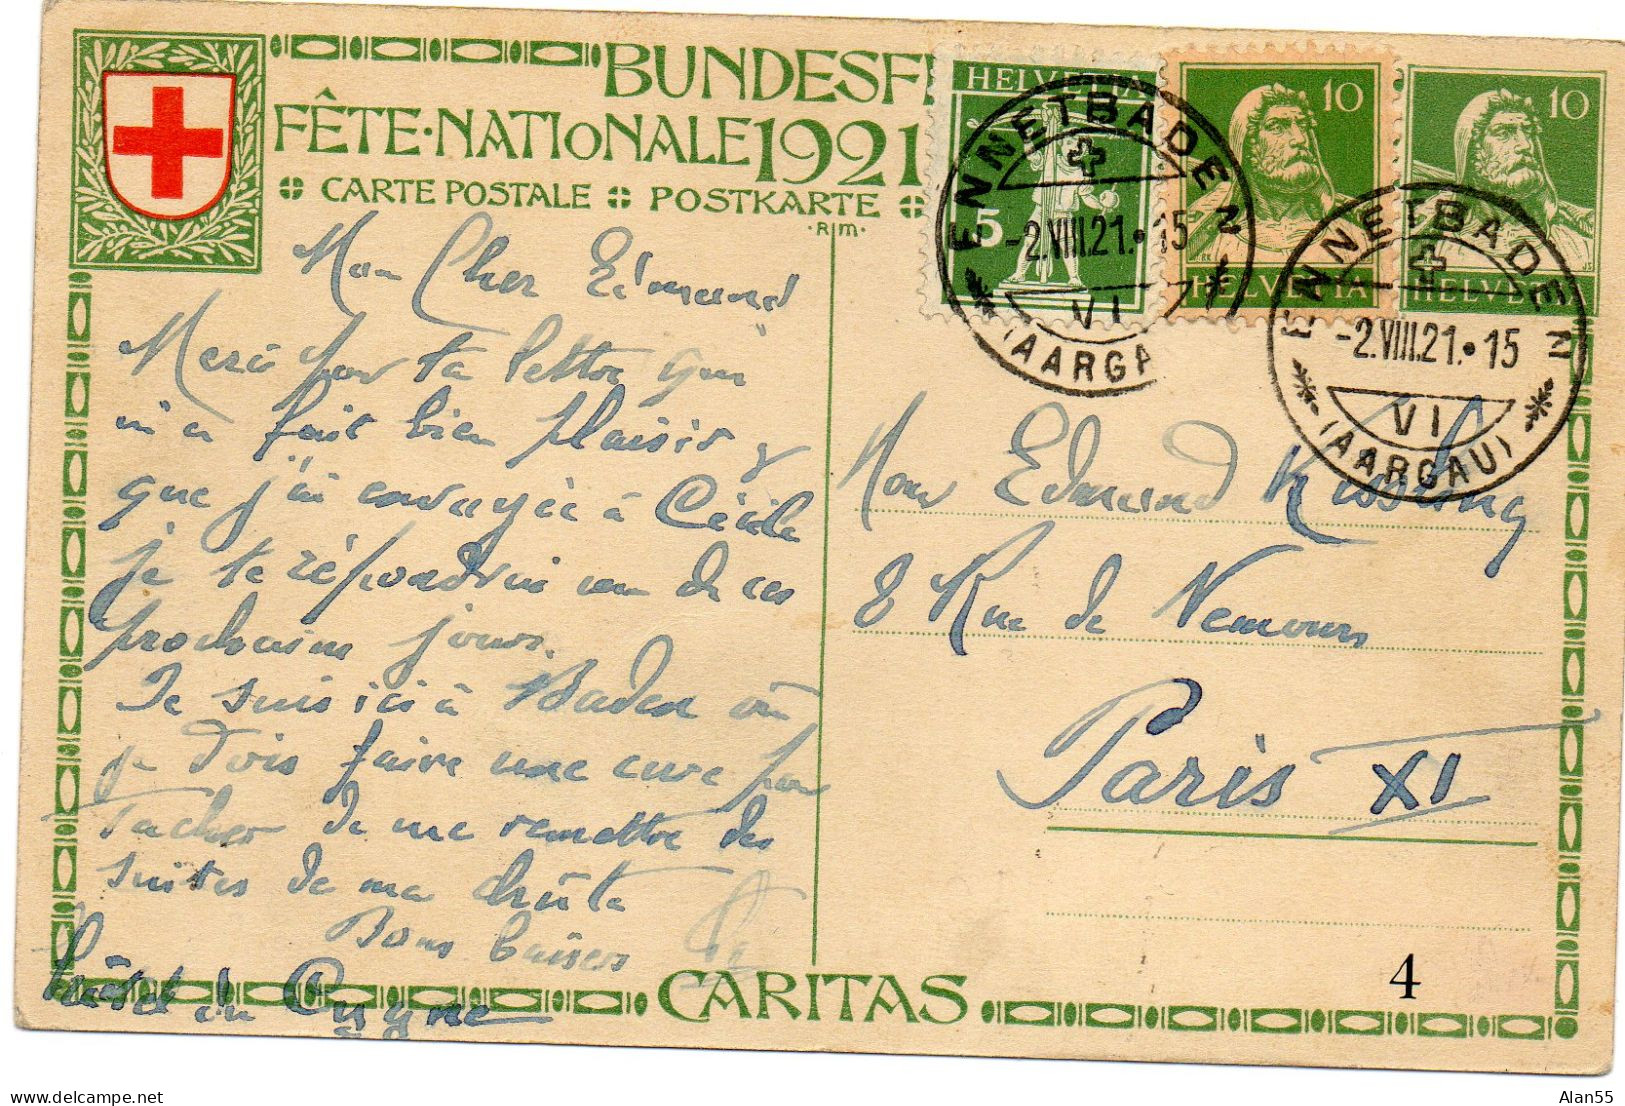 BUNDESF
FÊTE·NATIONALE 1921
CARTE POSTALE POSTKARTE
R.M.
HELVETIA
5
10
HELVETIA
10
HELVE
ENNETBADEN
-2.VIII.21.•15
VI
(AARGA
ENNETBADEN
-2.VIII.21.•15
VI
(AARGAU)
Mon Cher Edmund
Merci pour ta lettre qui
m'a fait bien plaisir &
que j'ai envoyée à Cécile
je te répondrai un de ces
prochains jours.
Je suis ici à Baden où
je dois faire une cure pour
tacher de me remettre des
suites de ma chûte
Bons baisers
Hôtel du Cygne
Monr Edmund Kissling
8 Rue de Nemours
Paris XI
CARITAS
4
Alan55